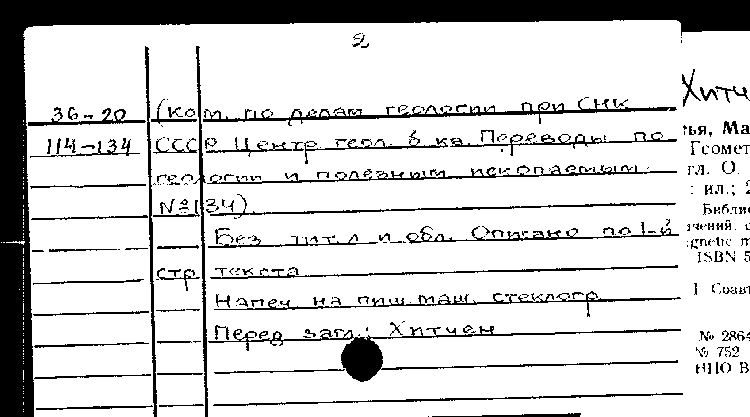 2
36-20 (Ком. по делам геологии при СНК
114-134 СССР. Центр. геол. б-ка. Переводы по
геологии и полезным ископаемым.
№134).
Без тит. л. и обл. Описано по 1-й
стр. текста
Напеч. на пиш. маш. стеклогр.
Перед загл.: Хитчен
Хитч
тья, Ма
Геомет
гл. О.
: ил.; 2
Библи
ignetic m
ISBN 5
1 Соавт
№ 2864
№ 752
НПО В